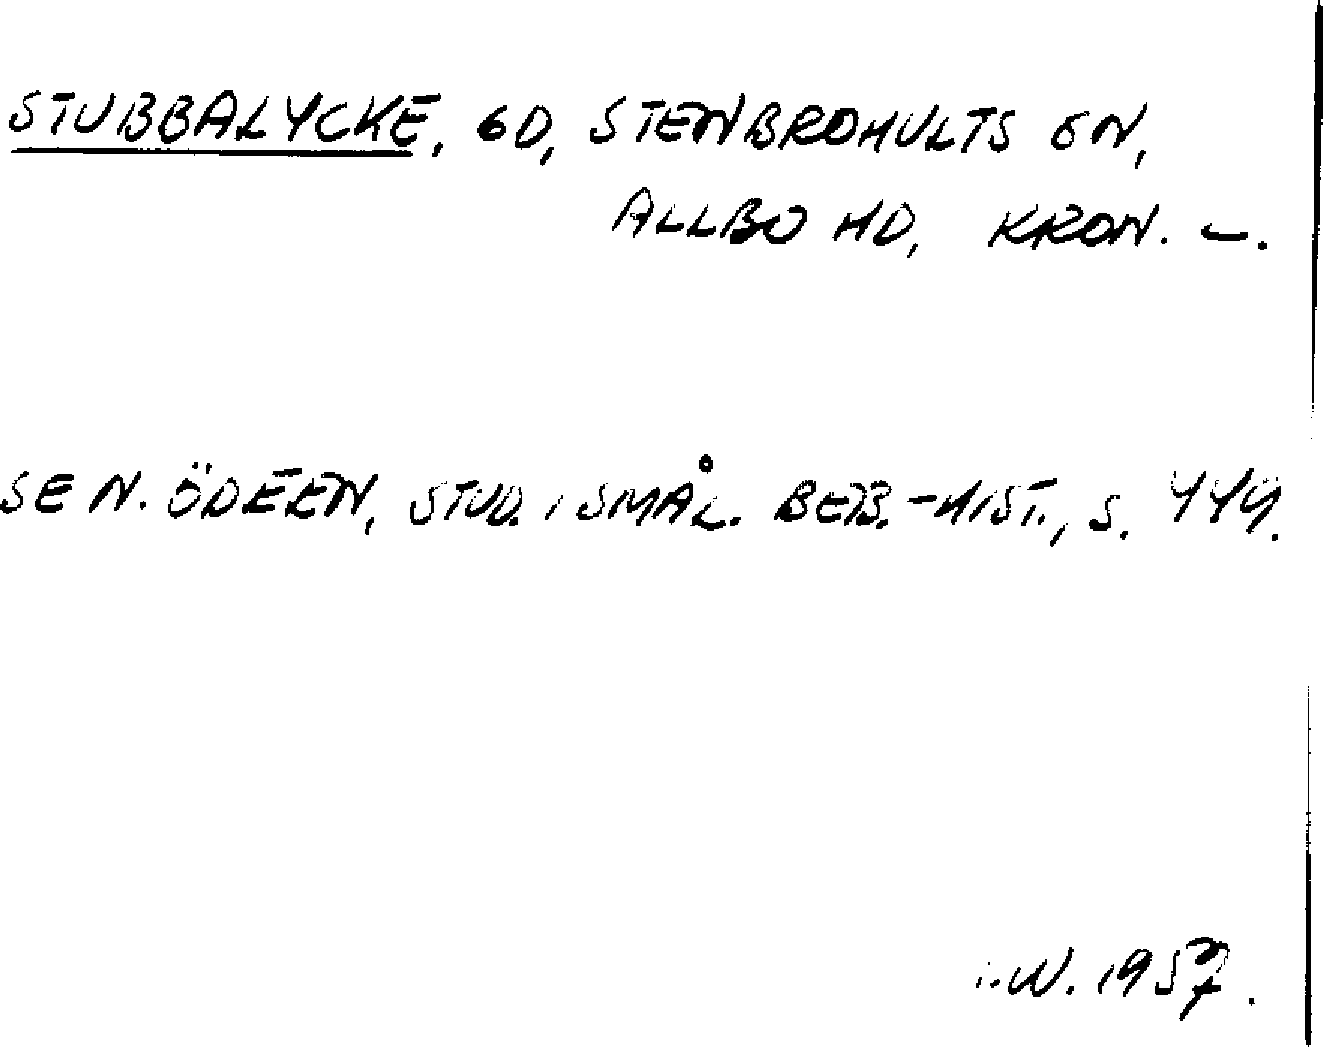 STUBBALYCKE, GD, STENBROHULTS SN,
ALLBO HD, KRON. L.
SE N. ÖDEEN, STUD. I SMÅL. BEB.-HIST., S. 449.
W. 1957.